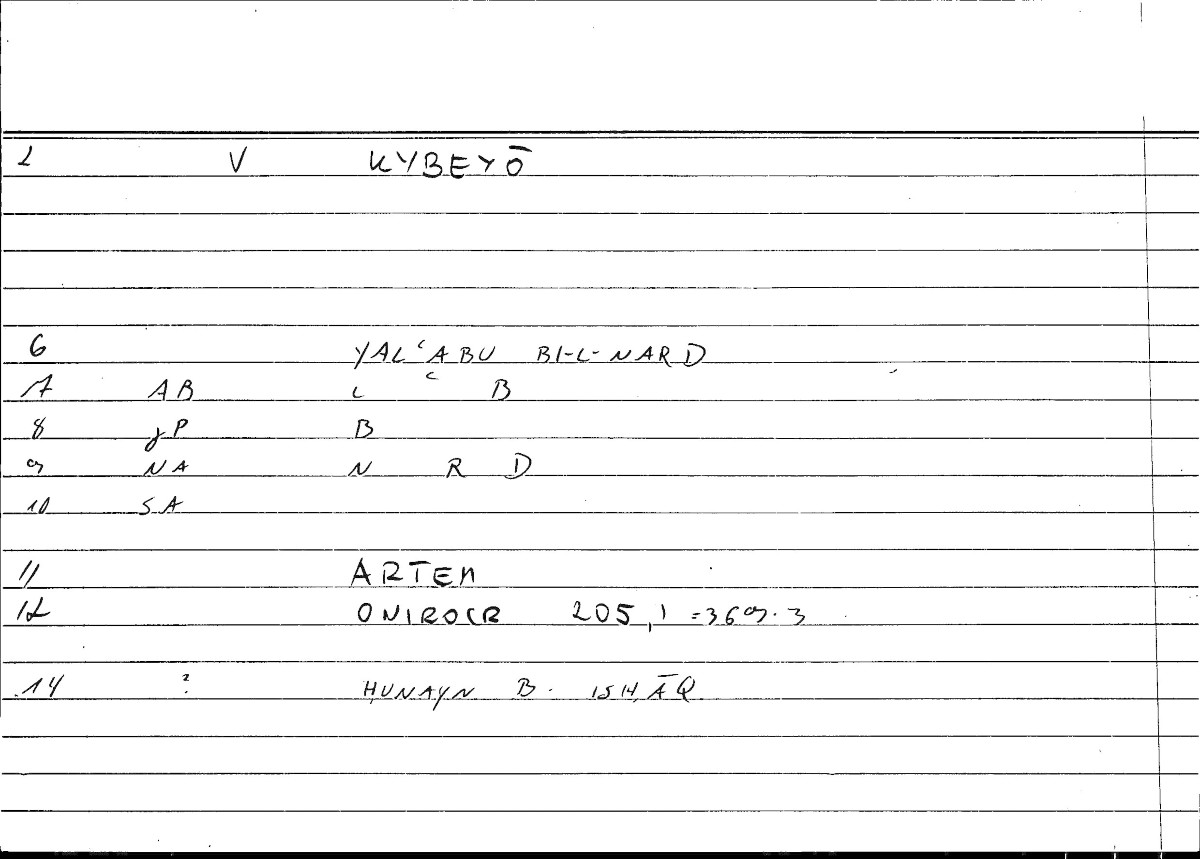 2 V KYBEYŌ
6 YALʿABU BI-L-NARD
7 AB L ʿ B
8 gP B
9 NA N R D
10 SA
11 ARTEM
12 ONIROCR 205,1 =369.3
14 ? ḤUNAYN B. ISḤĀQ